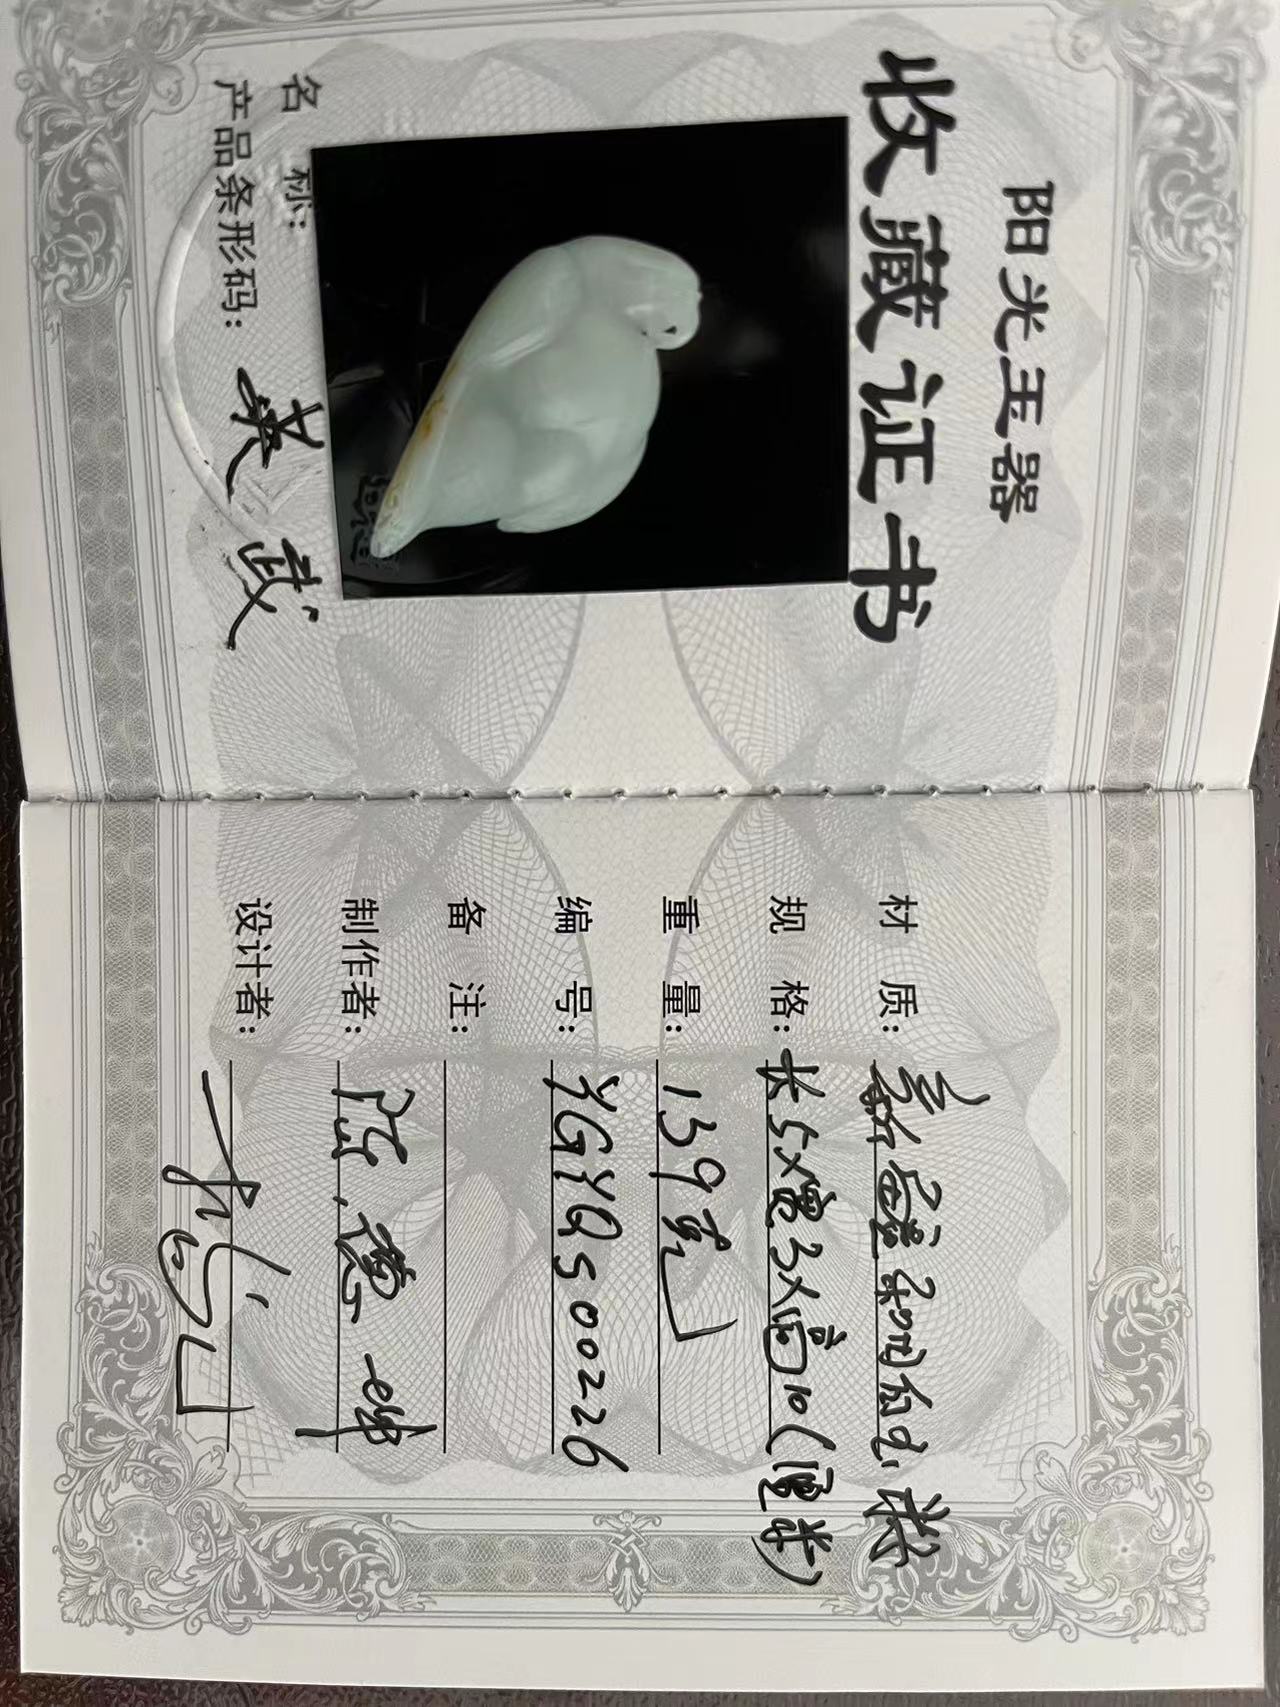 阳光玉器
收藏证书
名 称: 英武
产品条形码:
材 质: 新疆和田白玉籽
规 格: 长5x宽3x高10(厘米)
重 量: 139克
编 号: YGYQS00226
备 注:
制作者: 陈 德
设计者: